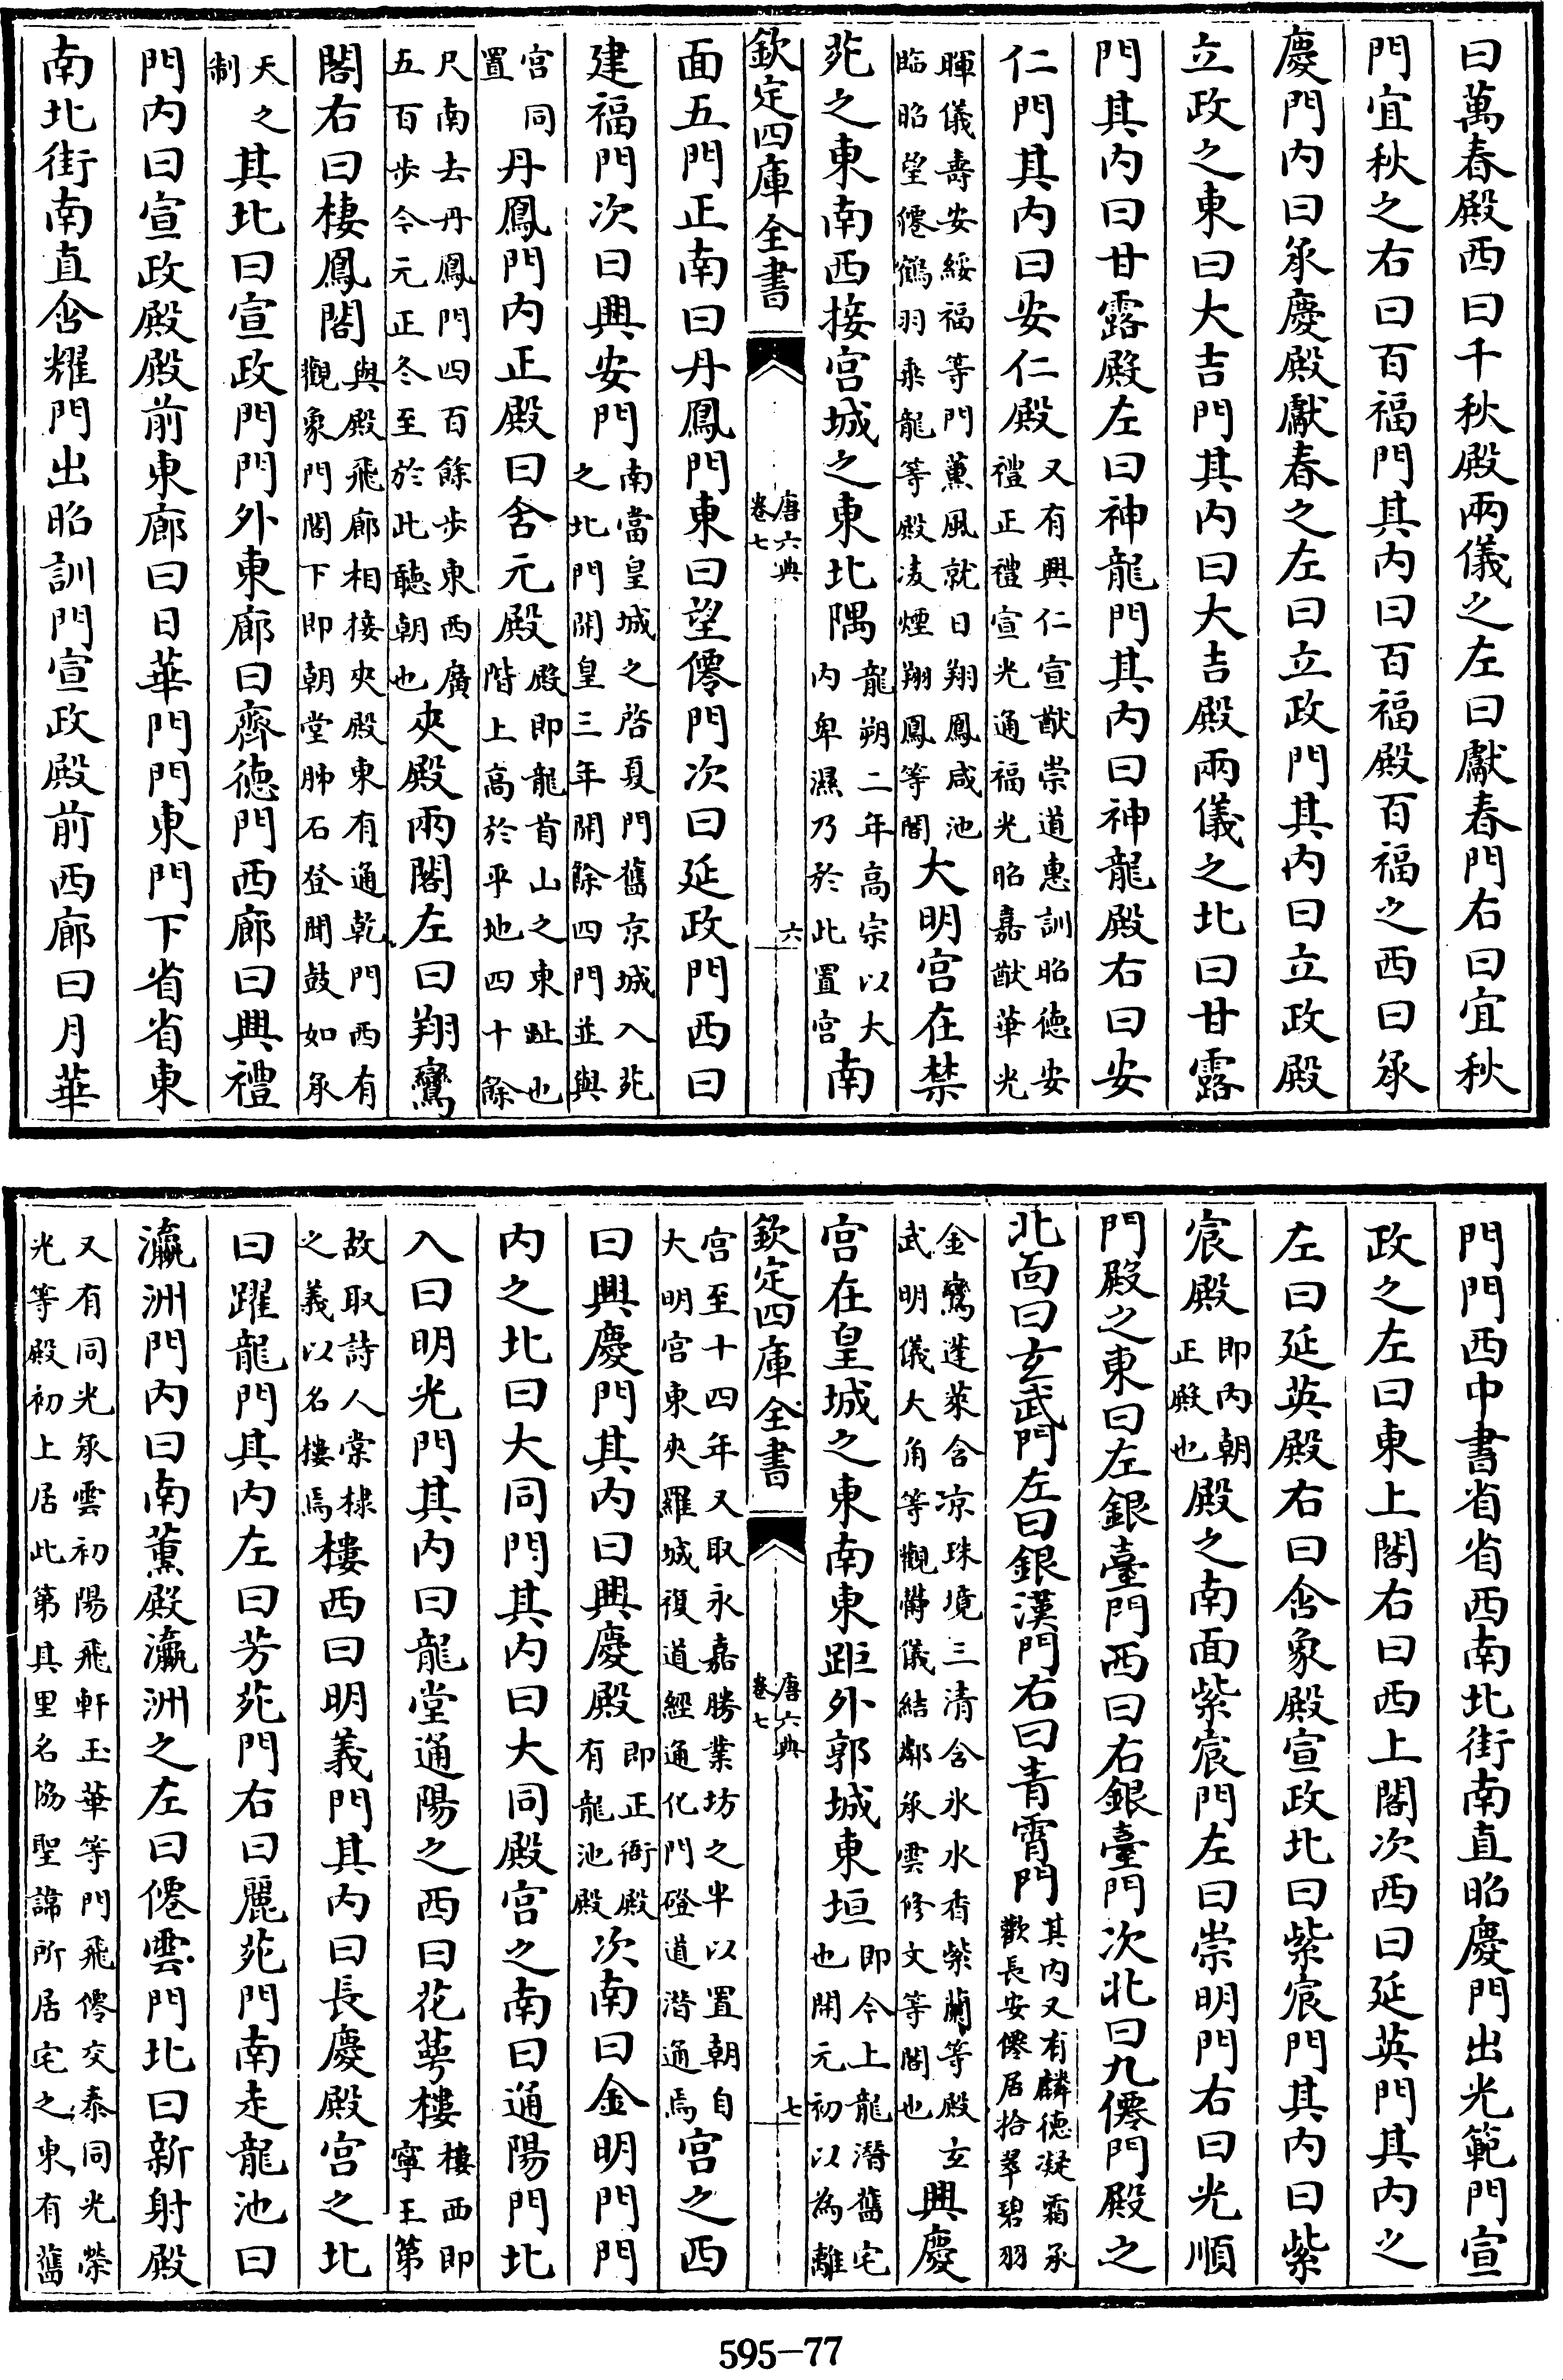 曰萬春殿西曰千秋殿兩儀之左曰獻春門右曰宜秋
門宜秋之右曰百福門其內曰百福殿百福之西曰承
慶門內曰承慶殿獻春之左曰立政門其內曰立政殿
立政之東曰大吉門其內曰大吉殿兩儀之北曰甘露
門其內曰甘露殿左曰神龍門其內曰神龍殿右曰安
仁門其內曰安仁殿又有興仁宣猷崇道惠訓昭德安禮正禮宣光通福光昭嘉猷華光
暉儀壽安綏福等門薰風就日翔鳳咸池臨昭望僊鶴羽乘龍等殿凌煙翔鳳等閣大明宮在禁
苑之東南西接宮城之東北隅龍朔二年高宗以大內卑濕乃於此置宮南
欽定四庫全書
唐六典
卷七
六
面五門正南曰丹鳳門東曰望僊門次曰延政門西曰
建福門次曰興安門南當皇城之啓夏門舊京城入苑之北門開皇三年開餘四門並與
宮同置丹鳳門內正殿曰含元殿殿即龍首山之東趾也階上高於平地四十餘
尺南去丹鳳門四百餘步東西廣五百步今元正冬至於此聽朝也夾殿兩閣左曰翔鸞
閣右曰棲鳳閣與殿飛廊相接夾殿東有通乾門西有觀象門閣下即朝堂肺石登聞鼓如承
天之制其北曰宣政門門外東廊曰齊德門西廊曰興禮
門內曰宣政殿殿前東廊曰日華門門東門下省省東
南北街南直含耀門出昭訓門宣政殿前西廊曰月華
門門西中書省省西南北街南直昭慶門出光範門宣
政之左曰東上閣右曰西上閣次西曰延英門其內之
左曰延英殿右曰含象殿宣政北曰紫宸門其內曰紫
宸殿即內朝正殿也殿之南面紫宸門左曰崇明門右曰光順
門殿之東曰左銀臺門西曰右銀臺門次北曰九僊門殿之
北面曰玄武門左曰銀漢門右曰青霄門其內又有麟德凝霜承歡長安僊居拾翠碧羽
金鸞蓬萊含凉珠境三清含氷水香紫蘭等殿玄武明儀大角等觀欎儀結鄰承雲修文等閣也興慶
宮在皇城之東南東距外郭城東垣即今上龍潛舊宅也開元初以為離
欽定四庫全書
唐六典
卷七
七
宮至十四年又取永嘉勝業坊之半以置朝自大明宮東夾羅城複道經通化門磴道潛通焉宮之西
曰興慶門其內曰興慶殿即正衙殿有龍池殿次南曰金明門門
內之北曰大同門其內曰大同殿宮之南曰通陽門北
入曰明光門其內曰龍堂通陽之西曰花萼樓樓西即寧王第
故取詩人棠棣之義以名樓焉樓西曰明義門其內曰長慶殿宮之北
曰躍龍門其內左曰芳苑門右曰麗苑門南走龍池曰
瀛洲門內曰南薰殿瀛洲之左曰僊雲門北曰新射殿
又有同光承雲初陽飛軒玉華等門飛僊交泰同光榮光等殿初上居此第其里名協聖諱所居宅之東有舊
595-77